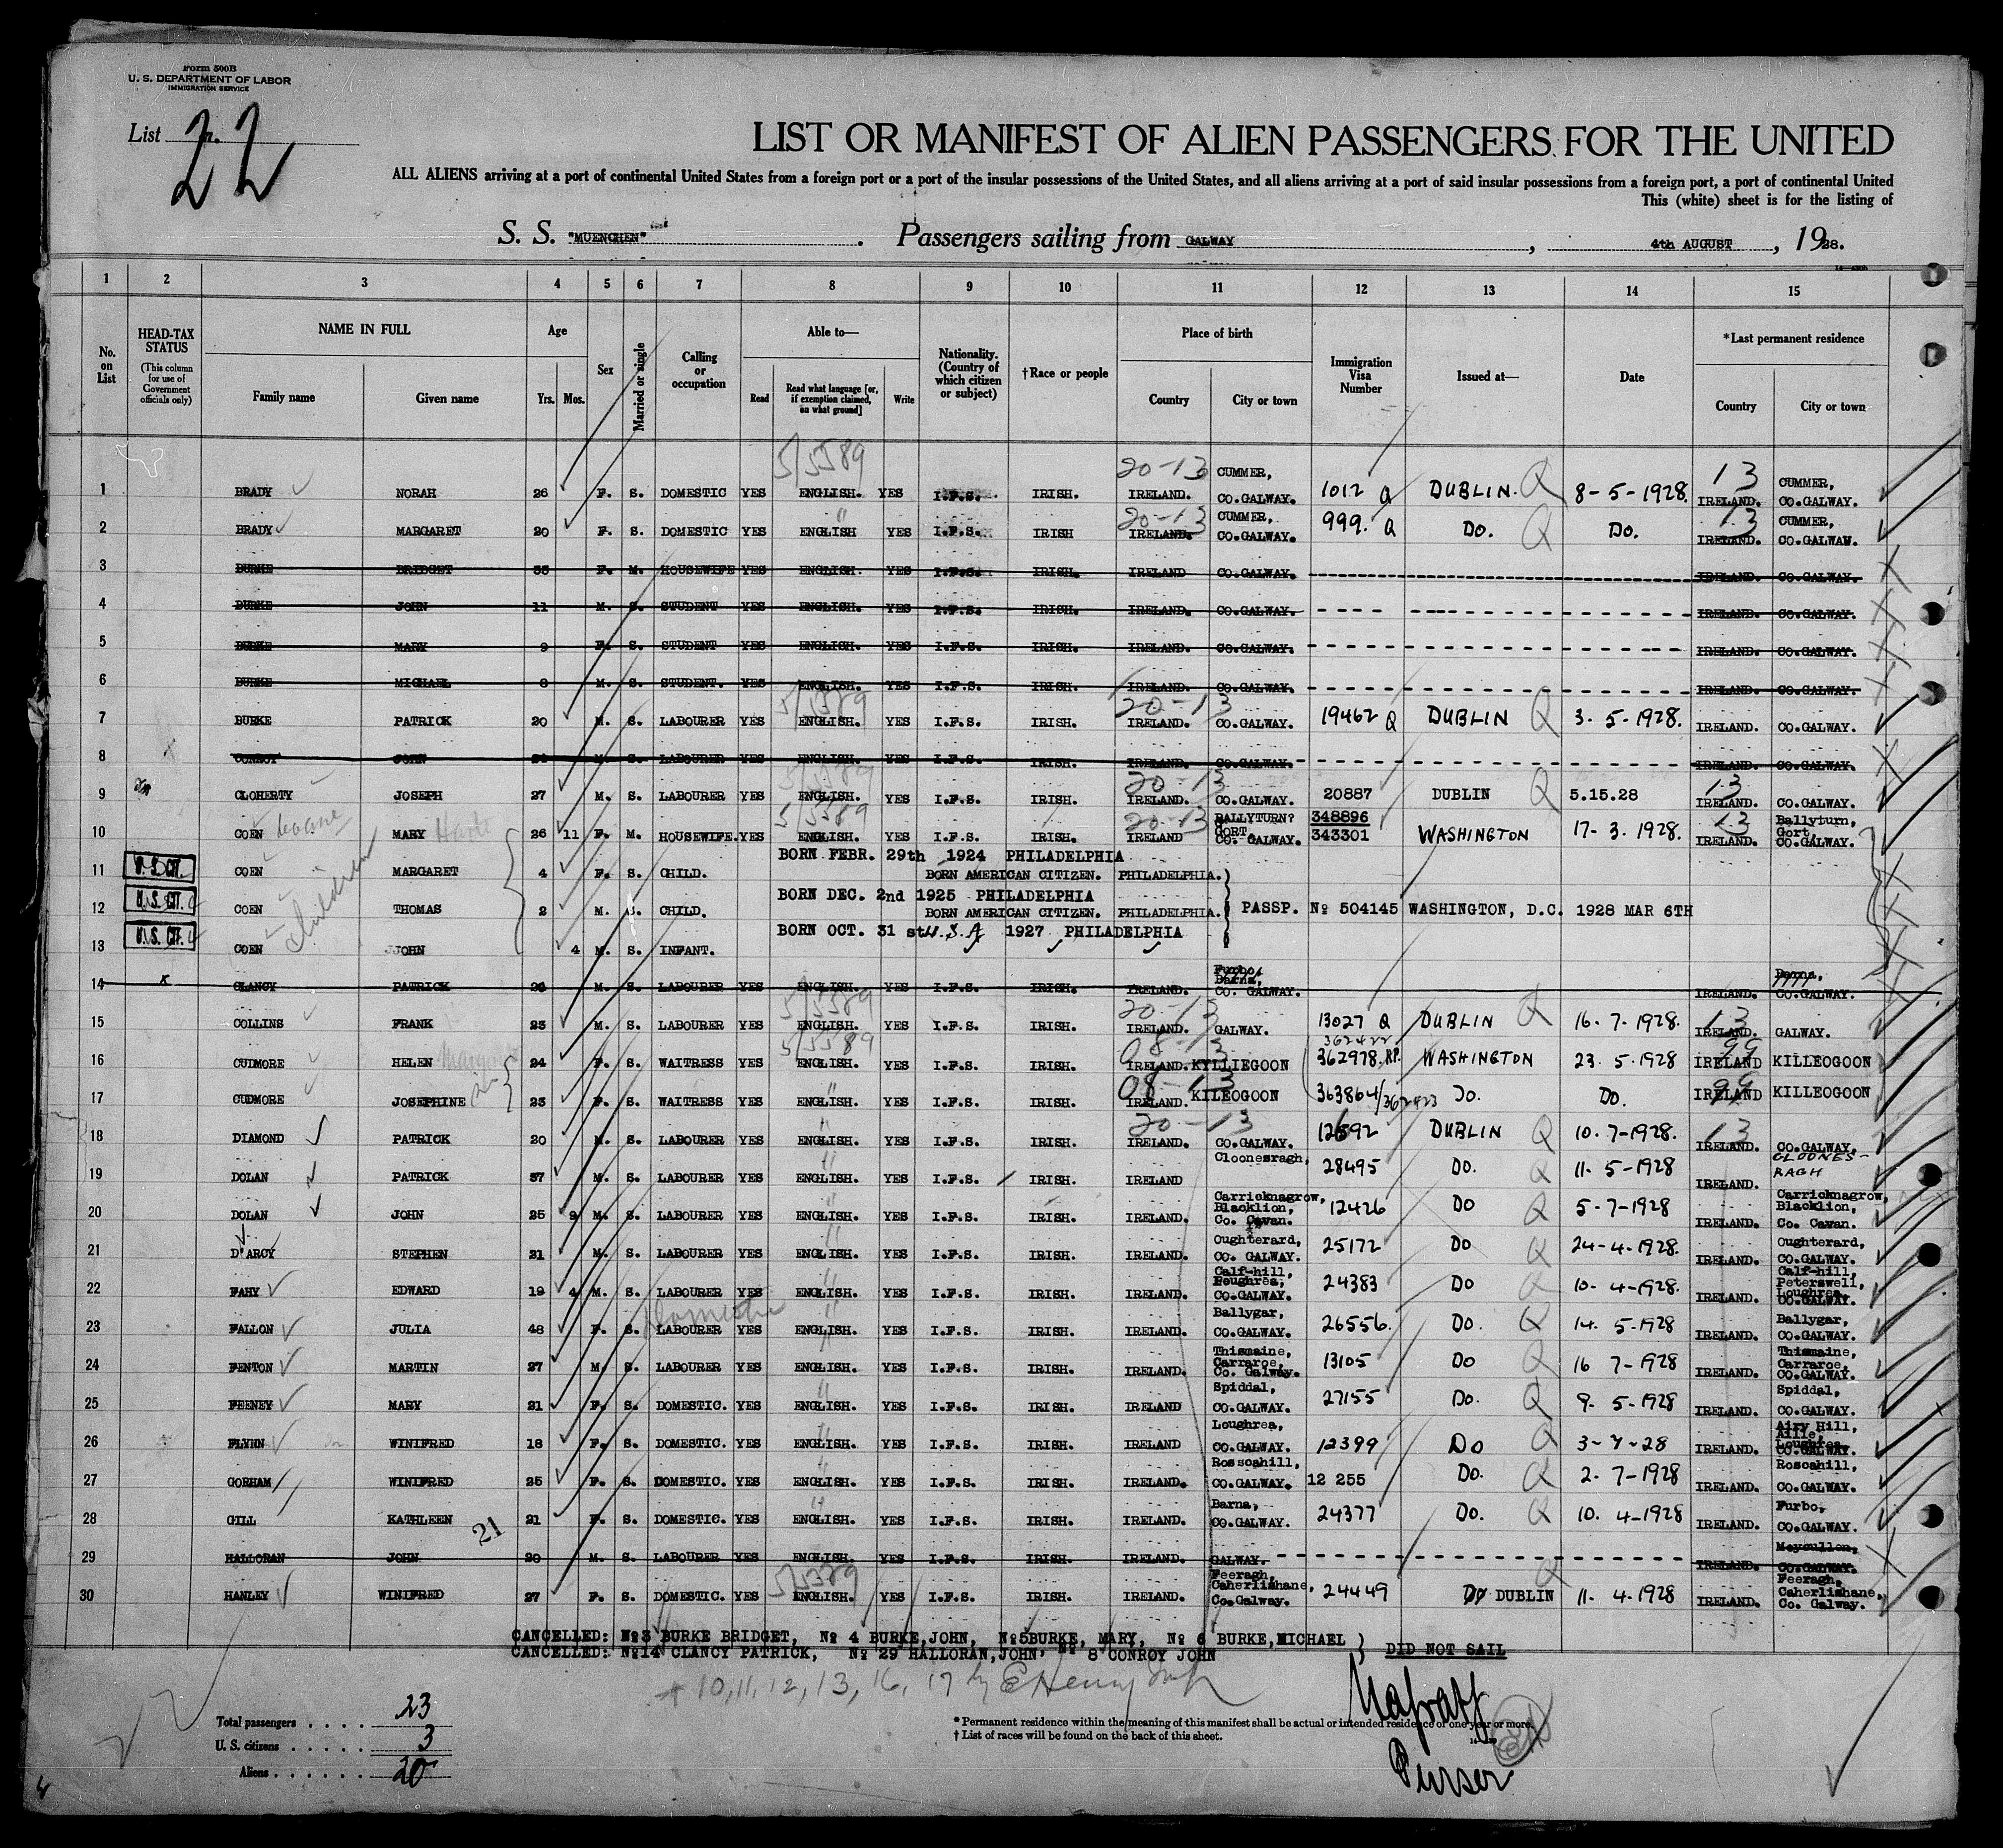 Form 500B
U. S. DEPARTMENT OF LABOR
IMMIGRATION SERVICE
List 22
LIST OR MANIFEST OF ALIEN PASSENGERS FOR THE UNITED
ALL ALIENS arriving at a port of continental United States from a foreign port or a port of the insular possessions of the United States, and all aliens arriving at a port of said insular possessions from a foreign port, a port of continental United
This (white) sheet is for the listing of
S. S. "MUENCHEN" . Passengers sailing from GALWAY , 4th AUGUST , 1928.
1 2 3 4 5 6 7 8 9 10 11 12 13 14 15
No. on List
HEAD-TAX STATUS (This column for use of Government officials only)
NAME IN FULL Family name Given name
Age Yrs. Mos.
Sex
Married or single
Calling or occupation
Able to— Read Read what language [or, if exemption claimed, on what ground] Write
Nationality. (Country of which citizen or subject)
†Race or people
Place of birth Country City or town
Immigration Visa Number
Issued at—
Date
*Last permanent residence Country City or town
5/5589 20-13 CUMMER, 13 CUMMER,
1 BRADY NORAH 26 F. S. DOMESTIC YES ENGLISH. YES I.F.S. IRISH. IRELAND. CO.GALWAY. 1012 Q DUBLIN. Q 8-5-1928. IRELAND. CO.GALWAY.
" 20-13 CUMMER, 13 CUMMER,
2 BRADY MARGARET 20 F. S. DOMESTIC YES ENGLISH YES I.F.S. IRISH IRELAND. CO.GALWAY. 999. Q DO. Q DO. IRELAND. CO.GALWAY.
3 BURKE BRIDGET 35 F. M. HOUSEWIFE YES ENGLISH. YES I.F.S. IRISH. IRELAND CO.GALWAY. IRELAND. CO.GALWAY.
4 BURKE JOHN 11 M. S. STUDENT YES ENGLISH. YES I.F.S. IRISH. IRELAND. CO.GALWAY. IRELAND. CO.GALWAY.
5 BURKE MARY 9 F. S. STUDENT YES ENGLISH. YES I.F.S. IRISH. IRELAND. CO.GALWAY. IRELAND. CO.GALWAY.
6 BURKE MICHAEL 8 M. S. STUDENT. YES ENGLISH. YES I.F.S. IRISH. IRELAND. CO.GALWAY. IRELAND. CO.GALWAY.
5/5589 20-13
7 BURKE PATRICK 20 M. S. LABOURER YES ENGLISH. YES I.F.S. IRISH. IRELAND. CO.GALWAY. 19462 Q DUBLIN Q 3. 5-1928. IRELAND. CO.GALWAY.
8 CONROY JOHN M. S. LABOURER YES ENGLISH. YES I.F.S. IRISH. IRELAND. CO.GALWAY. IRELAND. CO.GALWAY.
5/5589 20-13 13
9 CLOHERTY JOSEPH 27 M. S. LABOURER YES ENGLISH. YES I.F.S. IRISH. IRELAND. CO.GALWAY. 20887 DUBLIN Q 5.15.28 IRELAND. CO.GALWAY.
5/5589 20-13 BALLYTURN? 348896 13 Ballyturn,
10 COEN MARY 26 11 F. M. HOUSEWIFE. YES ENGLISH. YES I.F.S. IRISH. IRELAND GORT, CO. GALWAY. 343301 WASHINGTON 17-3. 1928. IRELAND. Gort, CO.GALWAY.
BORN FEBR. 29th 1924 PHILADELPHIA
11 U. S. CIT. COEN MARGARET 4 F. S. CHILD. BORN AMERICAN CITIZEN. PHILADELPHIA.
Children
BORN DEC. 2nd 1925 PHILADELPHIA
12 U. S. CIT. COEN THOMAS 2 M. S. CHILD. BORN AMERICAN CITIZEN. PHILADELPHIA. PASSP. No 504145 WASHINGTON, D.C. 1928 MAR 6TH
BORN OCT. 31 st U.S.A. 1927 PHILADELPHIA
13 U. S. CIT. COEN JOHN 4 M. S. INFANT.
Furbo, Barna,
14 x CLANCY PATRICK 26 M. S. LABOURER YES ENGLISH. YES I.F.S. IRISH. IRELAND. Barna, CO. GALWAY. IRELAND. CO.GALWAY.
5/5589 20-13 13
15 COLLINS FRANK 23 M. S. LABOURER YES ENGLISH. YES I.F.S. IRISH. IRELAND. GALWAY. 13027 Q DUBLIN Q 16-7-1928. IRELAND. GALWAY.
5/5589 08-13 362422 99
16 CUDMORE HELEN 24 F. S. WAITRESS YES ENGLISH. YES I.F.S. IRISH. IRELAND. KYLLIEGOON 362978.RP. WASHINGTON 23. 5-1928 IRELAND KILLEOGOON
" 08-13 99
17 CUDMORE JOSEPHINE 23 F. S. WAITRESS YES ENGLISH. YES I.F.S. IRISH. IRELAND. KILEOGOON 363864/362423 DO. DO. IRELAND KILLEOGOON
" 20-13 13
18 DIAMOND PATRICK 20 M. S. LABOURER YES ENGLISH. YES I.F.S. IRISH. IRELAND. CO.GALWAY. 12692 DUBLIN Q 10. 7-1928. IRELAND. CO.GALWAY.
" Cloonesragh, CLOONES-
19 DOLAN PATRICK 37 M. S. LABOURER YES ENGLISH. YES I.F.S. IRISH. IRELAND 28495 DO. Q 11. 5-1928 IRELAND. RAGH
" Carricknagrow, Carricknagrow,
20 DOLAN JOHN 25 9 M. S. LABOURER YES ENGLISH. YES I.F.S. IRISH. IRELAND. Blacklion, Co. Cavan. 12426 DO Q 5-7-1928 IRELAND. Blacklion, Co. Cavan.
" Oughterard, Oughterard,
21 D'ARCY STEPHEN 21 M. S. LABOURER YES ENGLISH. YES I.F.S. IRISH. IRELAND. CO. GALWAY. 25172 DO Q 24-4-1928. IRELAND. CO.GALWAY.
" Calf-hill, Calf-hill, Peterswell,
22 FAHY EDWARD 19 4 M. S. LABOURER YES ENGLISH. YES I.F.S. IRISH. IRELAND. CO.GALWAY. 24383 DO Q 10-4-1928. IRELAND. Loughrea, CO.GALWAY.
Domestic " Ballygar, Ballygar,
23 FALLON JULIA 48 F. S. LABOURER YES ENGLISH. YES I.F.S. IRISH. IRELAND. CO.GALWAY. 26556. DO. Q 14. 5-1928 IRELAND. CO.GALWAY.
Thismaine, Thismaine,
24 FENTON MARTIN 27 M. S. LABOURER YES ENGLISH. YES I.F.S. IRISH. IRELAND. Carraroe, Co. Galway. 13105 DO Q 16 7-1928 IRELAND. Carraroe, CO.GALWAY.
" Spiddal, Spiddal,
25 FEENEY MARY 21 F. S. DOMESTIC. YES ENGLISH. YES I.F.S. IRISH. IRELAND CO.GALWAY. 27155 DO. Q 9. 5-1928 IRELAND. CO.GALWAY.
" Loughrea, Airy Hill, Aille,
26 FLYNN WINIFRED 18 F. S. DOMESTIC. YES ENGLISH. YES I.F.S. IRISH. IRELAND CO.GALWAY. 12399 DO Q 3-7-28 IRELAND. Loughrea, CO.GALWAY.
" Rosscahill, Roscahill,
27 GORHAM WINIFRED 25 F. S. DOMESTIC. YES ENGLISH. YES I.F.S. IRISH. IRELAND. CO.GALWAY. 12 255 DO. Q 2. 7-1928 IRELAND. CO.GALWAY.
" Barna, Furbo,
28 GILL KATHLEEN 21 21 F. S. DOMESTIC. YES ENGLISH. YES I.F.S. IRISH. IRELAND. CO.GALWAY. 24377 DO. Q 10. 4-1928 IRELAND. CO.GALWAY.
Moycullen,
29 HALLORAN JOHN 20 M. S. LABOURER YES ENGLISH. YES I.F.S. IRISH. IRELAND. GALWAY. IRELAND. CO.GALWAY.
5/5389 Feeragh, Q Feeragh,
30 HANLEY WINIFRED 27 F. S. DOMESTIC. YES ENGLISH. YES I.F.S. IRISH. IRELAND. Caherlishane, Co.Galway. 24449 DUBLIN 11. 4.1928 IRELAND. Caherlishane, Co. Galway.
CANCELLED: No3 BURKE BRIDGET, No 4 BURKE,JOHN, No5BURKE, MARY, No 6 BURKE,MICHAEL } DID NOT SAIL
CANCELLED: No14 CLANCY PATRICK, No 29 HALLORAN,JOHN, No 8 CONROY JOHN
10, 11, 12, 13, 16, 17 by
Total passengers . . . . 23
U. S. citizens . . . . . 3
Aliens . . . . . . 20
* Permanent residence within the meaning of this manifest shall be actual or intended residence of one year or more.
† List of races will be found on the back of this sheet.
Purser